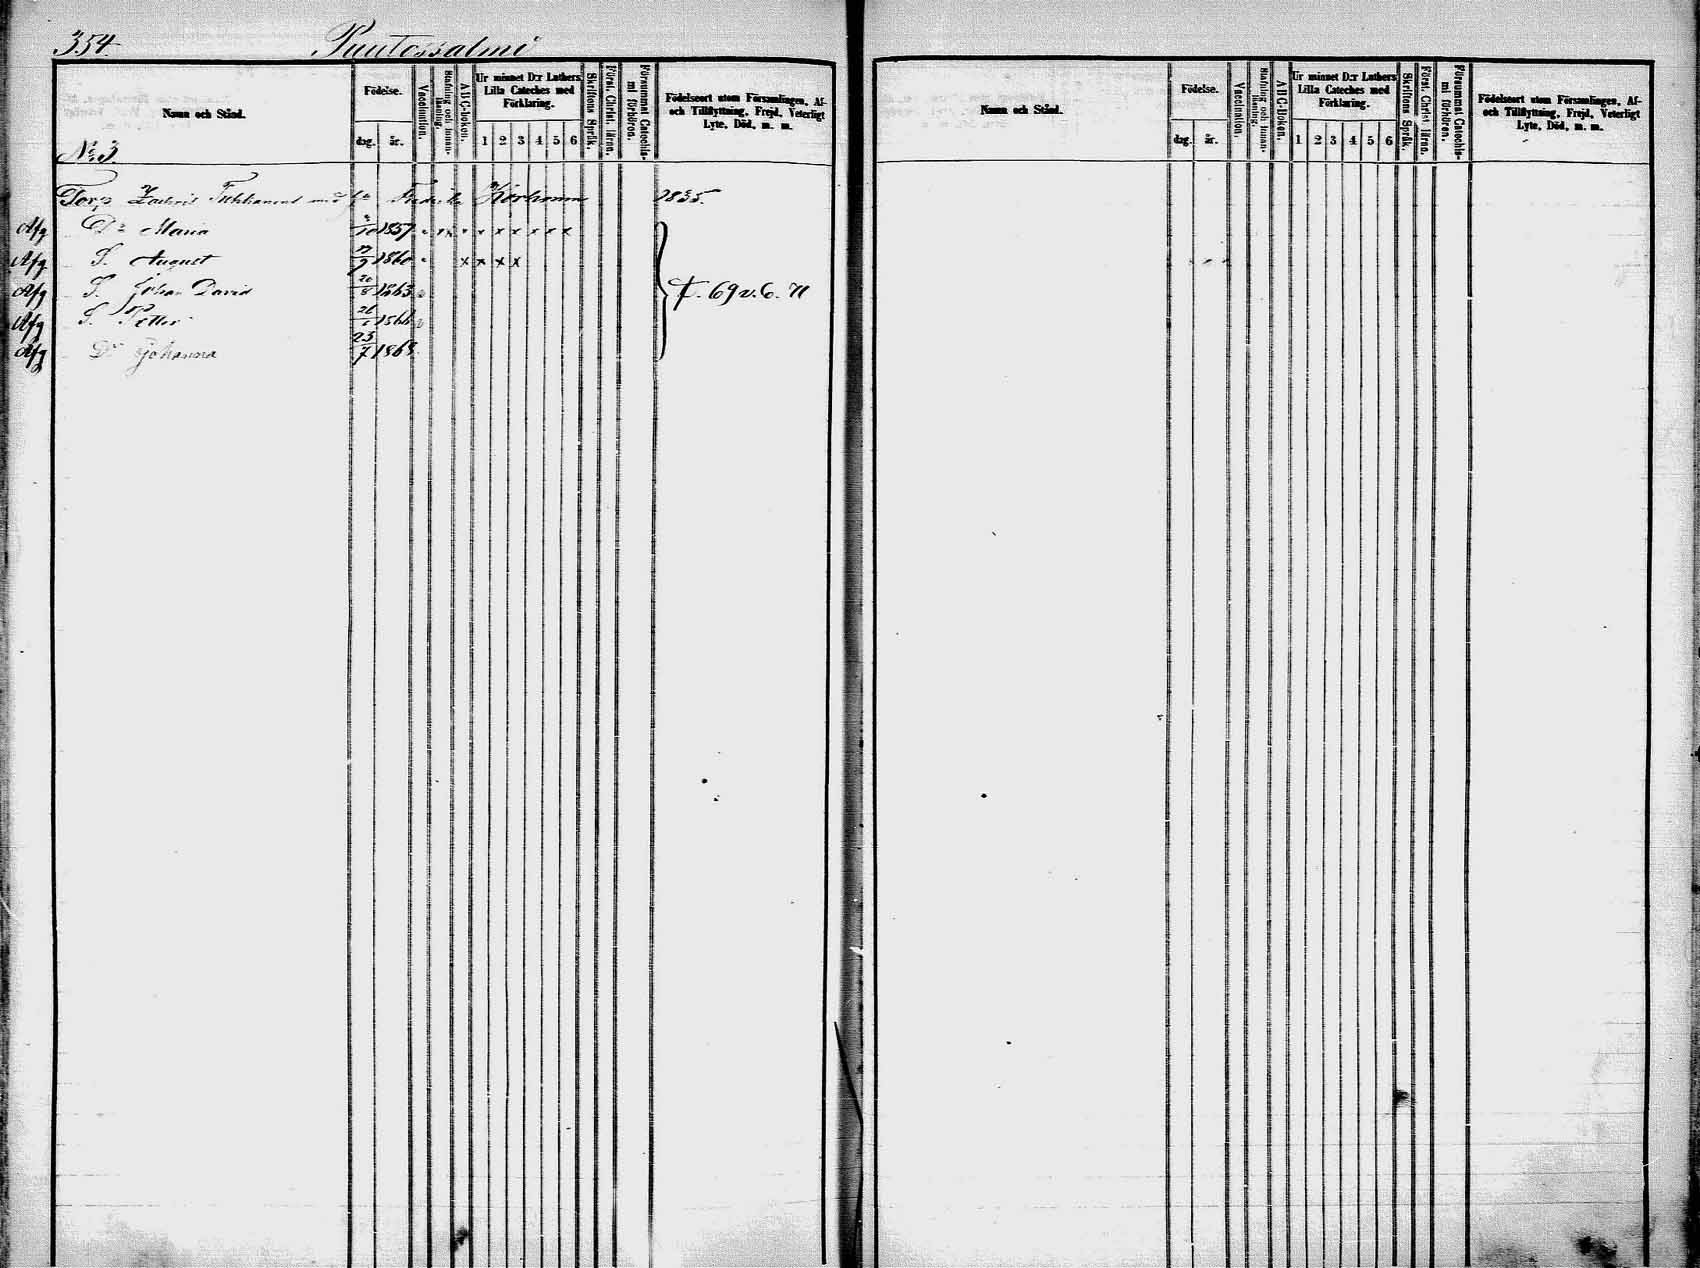 354. Puutossalmi
Namn och Stånd.
Födelse.
dag. år.
Vaccination.
Stafning och innan-läsning.
A B C-boken.
Ur minnet D:r Luthers Lilla Cateches med Förklaring.
1 2 3 4 5 6
Skriftens Språk.
Först. Christ. lärna.
Försummat Catechis-mi förhören.
Födelseort utom Församlingen, Af- och Tillflyttning, Frejd, Veterligt Lyte, Död, m. m.
No 3
Torp Fredrika Korhonen 1835.
Afg Dr Maria 10 1857 x x x x x x
Afg S. August 1860 x x x x
Afg S. Johan David 20/8 1863
Afg S. Petter 26 1866
Afg Dr Johanna 23/7 1868
69 v. 6. 71
Namn och Stånd.
Födelse.
dag. år.
Vaccination.
Stafning och innan-läsning.
A B C-boken.
Ur minnet D:r Luthers Lilla Cateches med Förklaring.
1 2 3 4 5 6
Skriftens Språk.
Först. Christ. lärna.
Försummat Catechis-mi förhören.
Födelseort utom Församlingen, Af- och Tillflyttning, Frejd, Veterligt Lyte, Död, m. m.